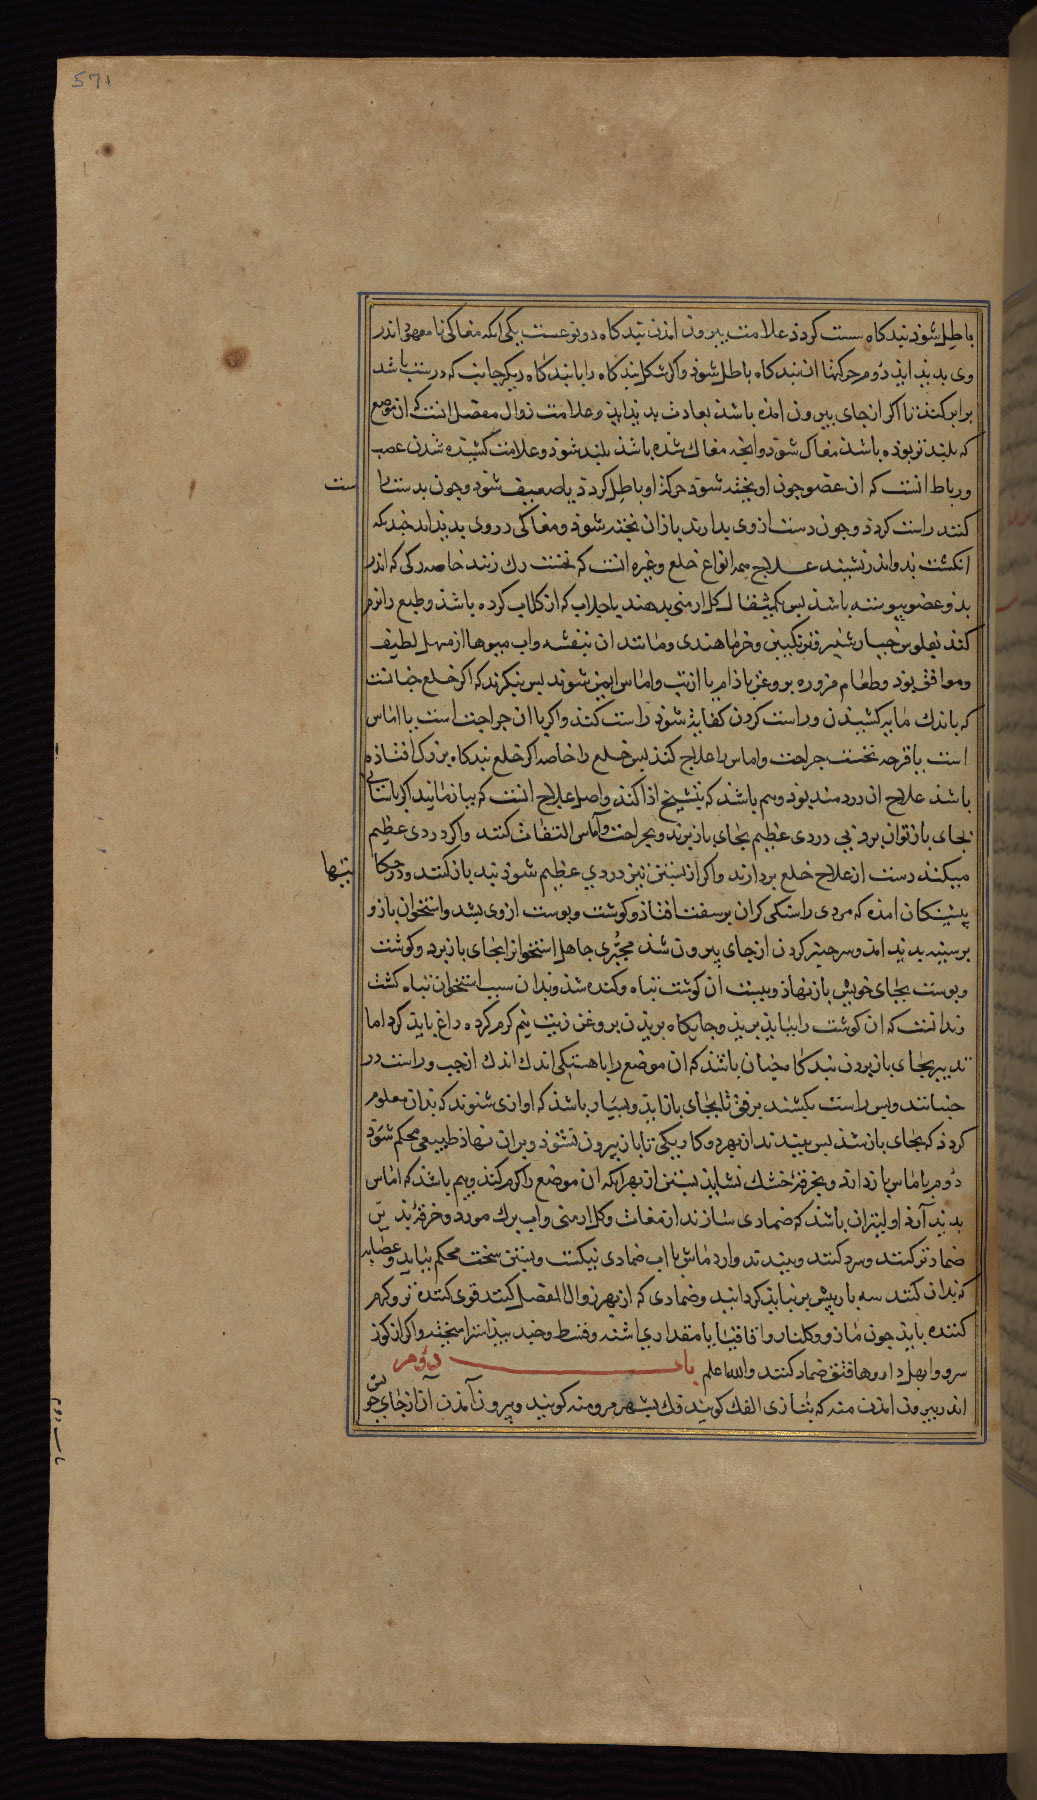 571
باطل شوذ بندکاه سست کردذ علامت بیرون امدن بندکاه دو نوعست یکی انکه مغاکی نا معهود اندر
وی بدیذ ایذ دوم حرکتها ان بندکاه باطل شوذ واکر شکل بندکاه را با بندکاه دیکر جانب که درست باشد
برابر کنند تا اکر از جای بیرون امذه باشذ تفاوت بدیذ ایذ وعلامت زوال مفصل انست که ان موضع
که بلند تر بوذه باشذ مغاک شوذ وانچه مغاک شذه باشذ بلند شوذ وعلامت کشیده شدن عصب
ورباط انست که ان عضو چون اویخته شوذ حرکة او باطل کردد یا ضعیف شوذ وچون بدست را
ست
کنند راست کردذ وچون دست از وی بدارند باز اویخته شوذ ومغاکی در وی بدیذ اید چندانکه
انکشت بدو اندر نشیند علاج همه انواع خلع وغیره انست که نخست رك زنند خاصه رکی که اندر
بذو عضو پیوسته باشذ بس یکمثقال کل ارمنی بدهند با جلاب که از کلاب کرده باشذ وطبع را نرم
کنند بفلوس خیار شنبر وترنکبین وخرما هندی ومانند ان بنفشه واب میوها از مسهل لطیف
وموافق بوذ وطعام مزوره بروغن باذام با از تب واماس ایمن شوند بس بنکرند که اکر خلع چنانست
که باندك مایه کشیدن وراست کردن کفایة شوذ راست کنند واکر با ان جراحت است یا اماس
است یا قرحه نخست جراحت واماس را علاج کنند بس خلع را خاصه اکر خلع بندکاه بزرک افتاذه
باشذ علاج ان دردمند بوذ وبیم باشد که تشنج اذا کند واصل علاج انست که بیازمایند اکر باسانی
بجای باز توان برد بی دردی عظیم بجای باز برند وبجراحت واماس التفات کنند واکر دردی عظیم
میکند دست از علاج خلع بردارند واکر از بستن نیز دردی عظیم شوذ بند باز کنند ودر حکا
یتها
پیشینکان امذه که مردی را سنکی کران بر سفت افتاذ وکوشت وپوست از وی بشد واستخوان بازو
بر سینه بدید امد وسر چنبر کردن از جای بیرون شذ مجبری جاهل استخوانرا بجای باز برد وکوشت
وپوست بجای خویش باز نهاذ وببست ان کوشت تباه وکنده شذ وبدان سبب استخوان تباه کشت
ندانست که ان کوشت را بباید برید وجایکاه بریدن بروغن زیت نیم کرم کرده داغ باید کرد اما
تدبیر بجای باز بردن بندکاه چنان باشذ که ان موضع را باهستکی اندك اندك از چپ وراست در
جنبانند وپس راست بکشند برفق تا بجای باز ایذ وبسیار باشذ که اوازی شنوند که بدان معلوم
کردذ که بجای باز شذ بس ببندند از بهر دو کار یکی تا باز بیرون نشوذ وبران نهاذ طبیعی محکم شوذ
دوم تا اماس باز دارد وبخرقه خشك نشاید بستن از بهر انکه ان موضع را کرم کند وبیم باشد که اماس
بدید آرذ اولیتر ان باشذ که ضمادی سازند از مغاث وکل ارمنی واب برك مورد وخرقه بذین
ضماد تر کنند وسرد کنند وببندند وارد ماش با اب ضمادی نیکست وبستن سخت محکم نباید وعصابه
که بدان کنند سه بار پیش بر نباید کردانید وضمادی که از بهر زوال المفصل کنند قوی کننده تر وکرم
کننده بایذ چون مازو وکلنار واقاقیا با مقداری اشنه وقسط وجند بیذستر امیخته واکر از کوز
سرو وابهل داروها فتق ضماد کنند والله اعلم باب دوم
اندر بیرون امذن منه که بتازی الفك کویند فك بشهر مرو منه کویند وبیرون آمذن آن از جای جو
باب دوم